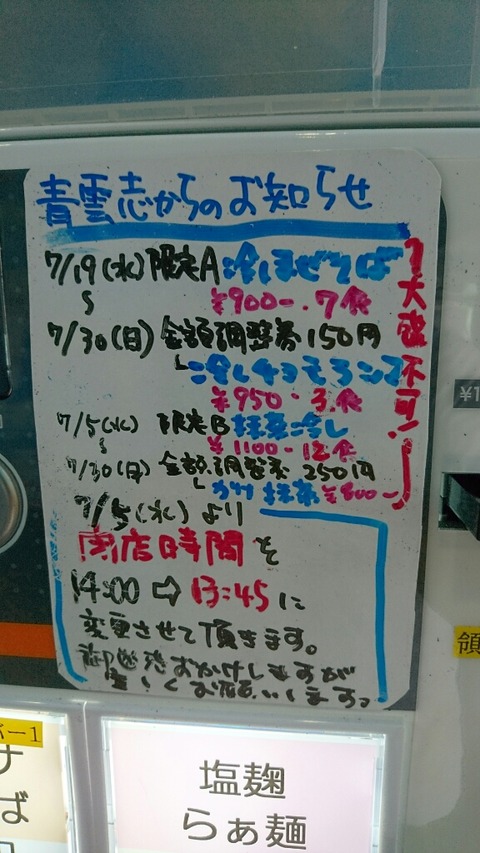 青雲志からのお知らせ
7/19(水) 限定A 冷しまぜそば
〜 ¥900-. 7食
7/30(日) 金額調整券150円
¥950- 3食
7/5(水) 限定B 抹茶冷し
〜 ¥1100- 12食
7/30(日) 金額調整券 250円
抹茶 ¥800-
大盛不可!
7/5(水)より
閉店時間を
14:00 ⇨ 13:45に
変更させて頂きます。
御迷惑おかけしますが
お願いします
¥1
領
バー1
ば
塩麹
らぁ麺